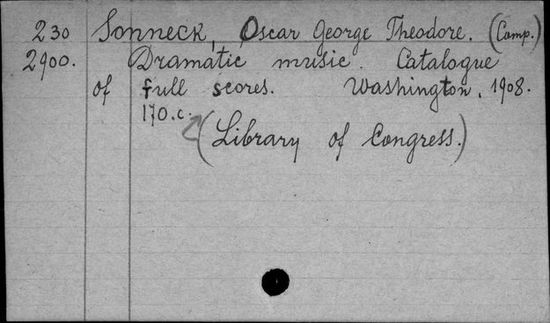 230 Sonneck, Oscar George Theodore. (Comp.)
2900. Dramatic music. Catalogue
of full scores. Washington, 1908.
170.c.
(Library of Congress.)